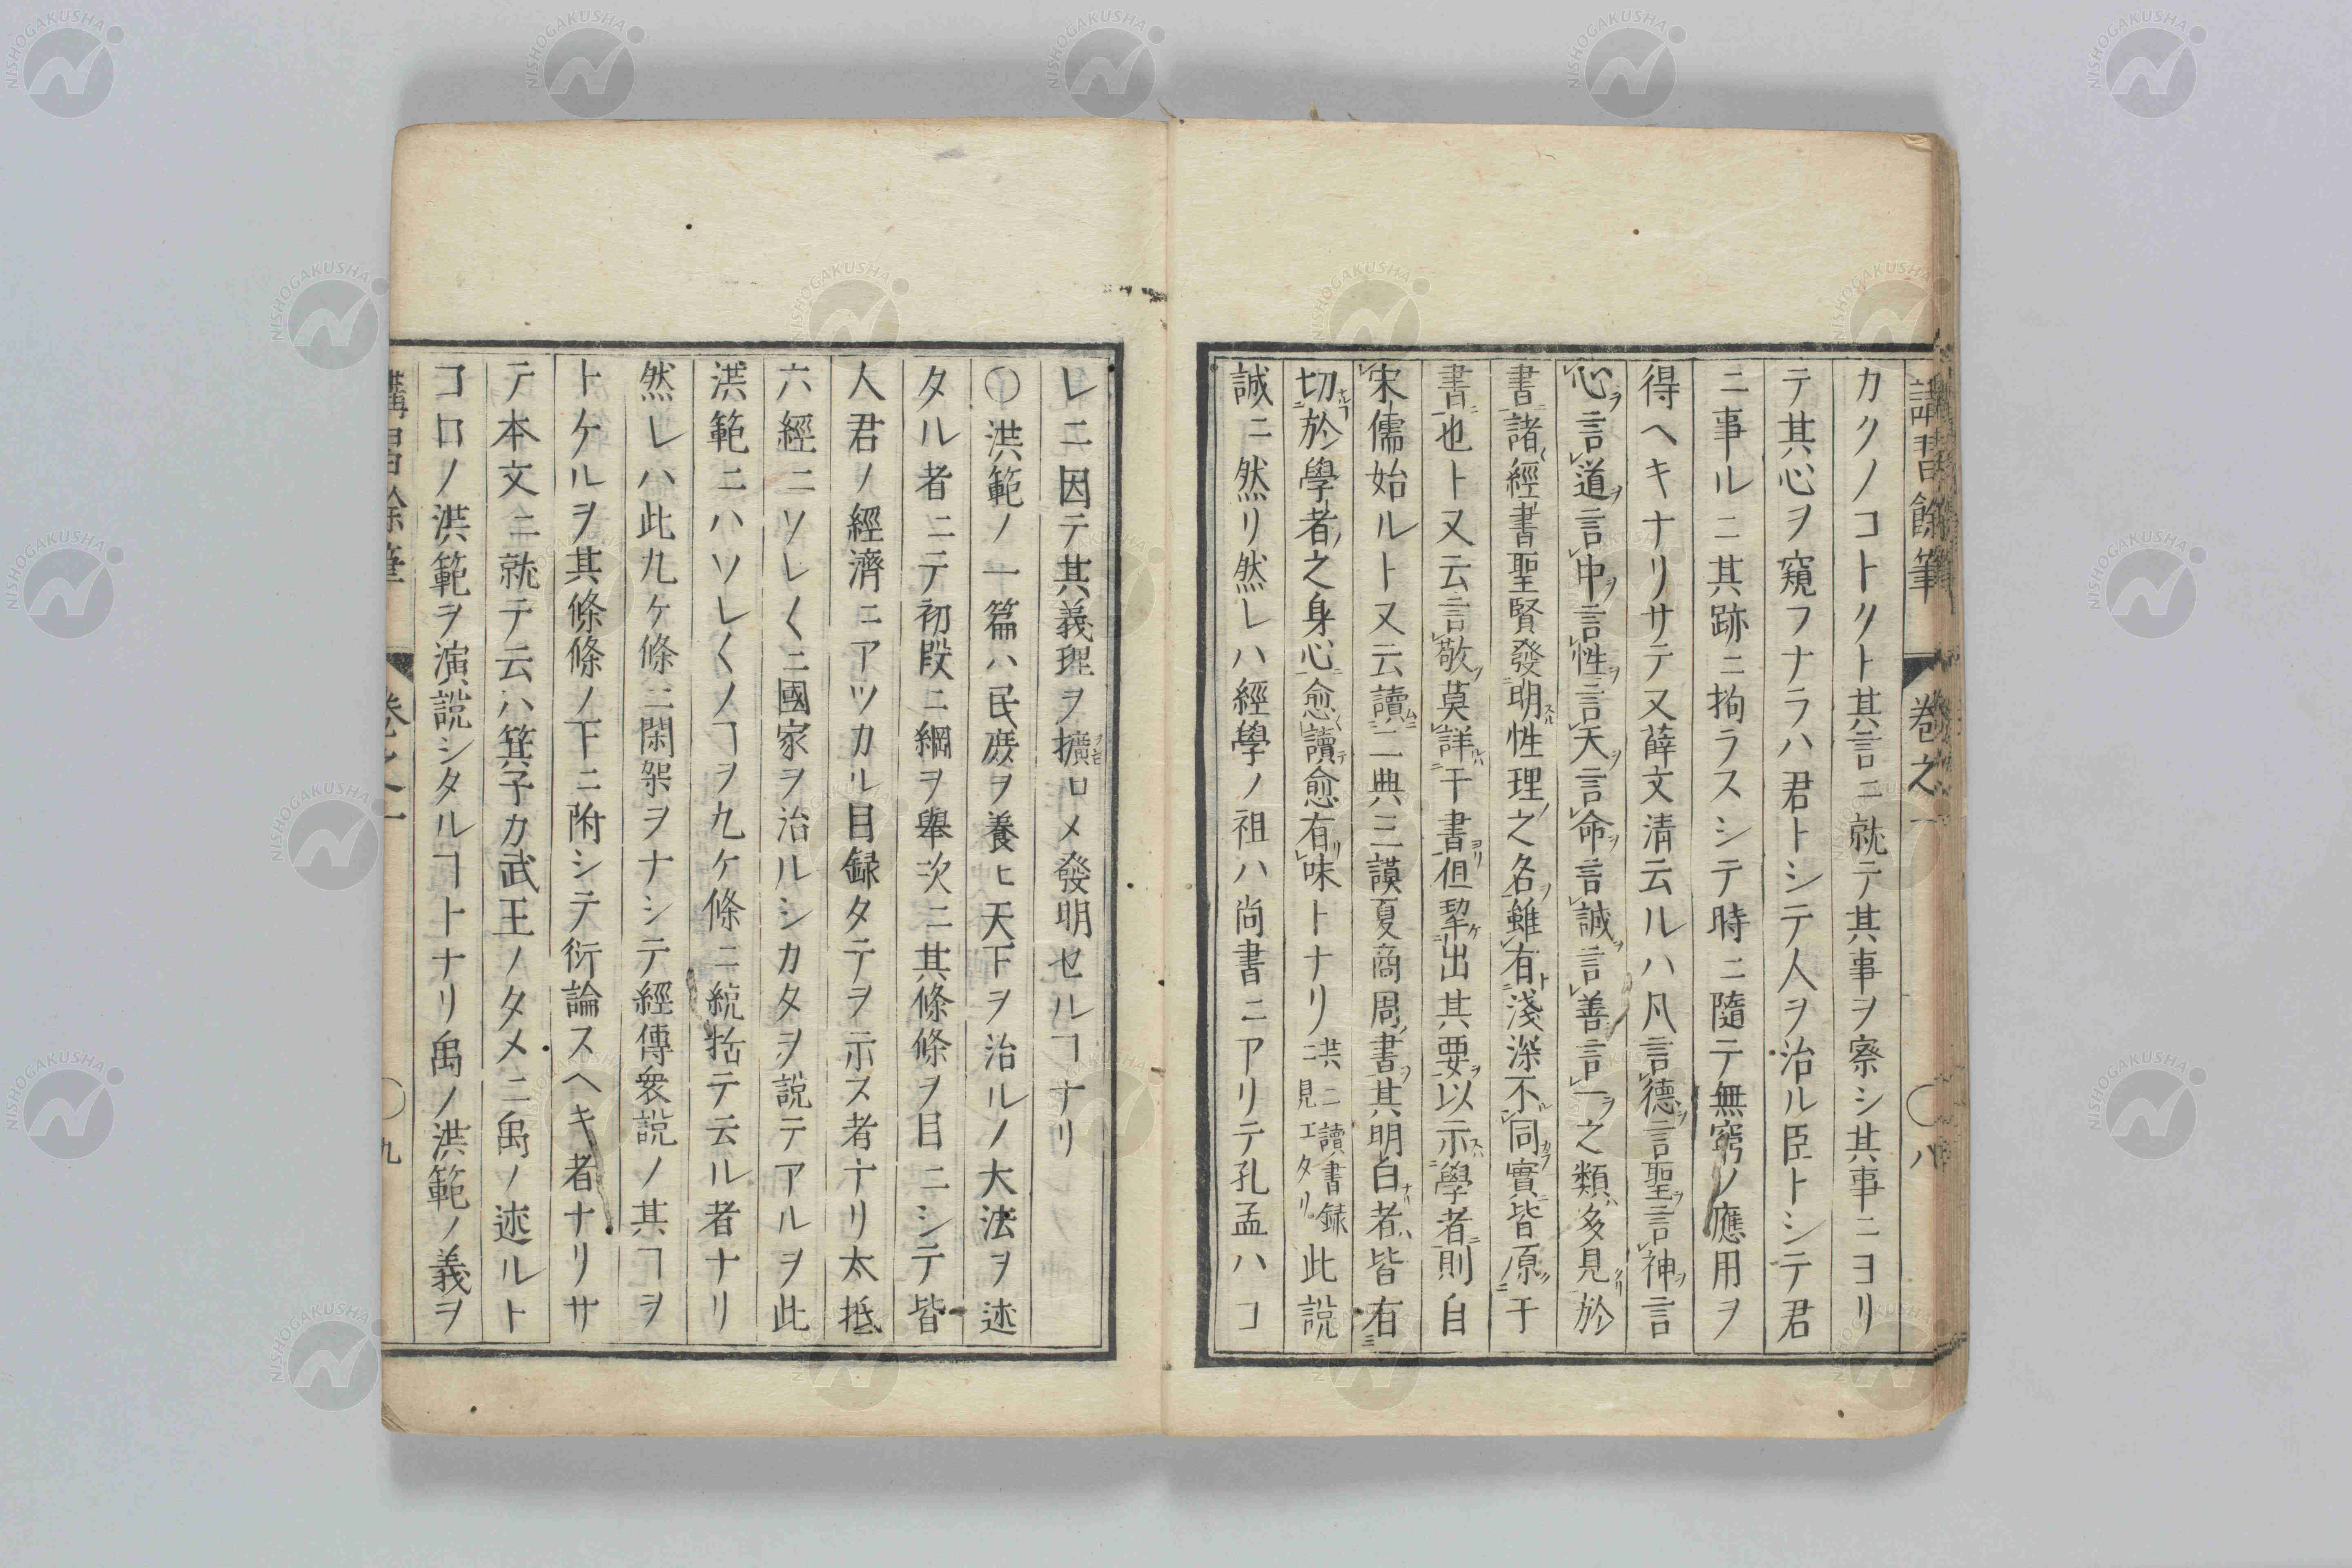 講習餘筆 卷之一 〇八
カクノコトクト其言ニ就テ其事ヲ察シ其事ニヨリ
テ其心ヲ窺フナラハ君トシテ人ヲ治ル臣トシテ君
ニ事ルニ其跡ニ拘ラスシテ時ニ隨テ無窮ノ應用ヲ
得ヘキナリサテ又薛文清云ルハ凡言德言聖言神言
心言道言中言性言天言命言誠言善言一之類多見於
書諸經書聖賢發明性理之名雖有淺深不同實皆原于
書也ト又云言敬莫詳于書但挈出其要以示學者則自
宋儒始ルト又云讀二典三謨夏商周書其明白者皆有
切於學者之身心愈讀愈有味トナリ洪ニ讀書録ニ見エタリ此説
誠ニ然リ然レハ經學ノ祖ハ尚書ニアリテ孔孟ハコ
レニ因テ其義理ヲ擴ロメ發明セルヿナリ
〇洪範ノ一篇ハ民庶ヲ養ヒ天下ヲ治ルノ大法ヲ述
タル者ニテ初段ニ綱ヲ舉次ニ其條條ヲ目ニシテ皆
人君ノ經濟ニアツカル目録タテヲ示ス者ナリ太抵
六經ニソレ〱ニ國家ヲ治ルシカタヲ説テアルヲ此
洪範ニハソレ〱ノヿヲ九ケ條ニ統括テ云ル者ナリ
然レハ此九ケ條ニ閑架ヲナシテ經傳衆説ノ其ヿヲ
トケルヲ其條條ノ下ニ附シテ衍論スヘキ者ナリサ
テ本文ニ就テ云ハ箕子カ武王ノタメニ禹ノ述ルト
コロノ洪範ヲ演説シタルヿトナリ禹ノ洪範ノ義ヲ
講習餘筆 卷之一 〇九
NISHOGAKUSHA